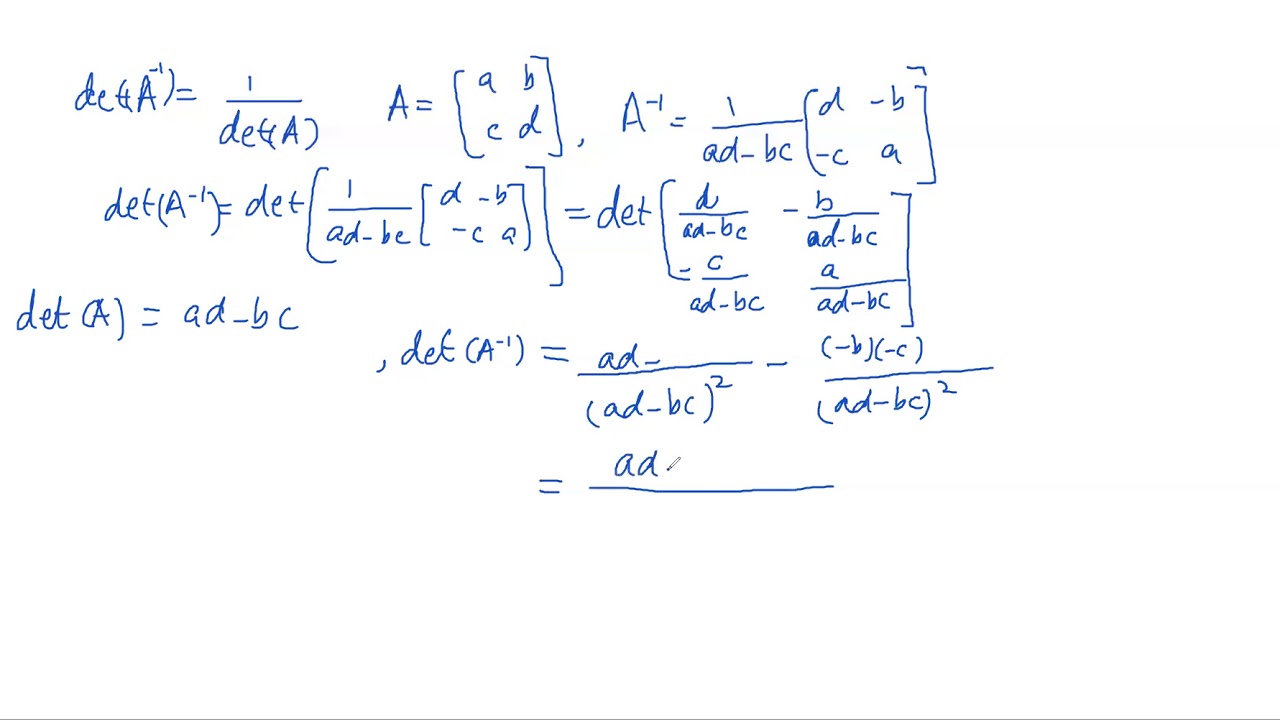 det(A⁻¹) = 1/det(A)   A = [a b; c d] , A⁻¹ = 1/(ad-bc) [d -b; -c a]
det(A⁻¹) = det[1/(ad-bc) [d -b; -c a]] = det[d/(ad-bc) -b/(ad-bc); -c/(ad-bc) a/(ad-bc)]
det(A) = ad-bc
, det(A⁻¹) = ad-/(ad-bc)² - (-b)(-c)/(ad-bc)²
= ad